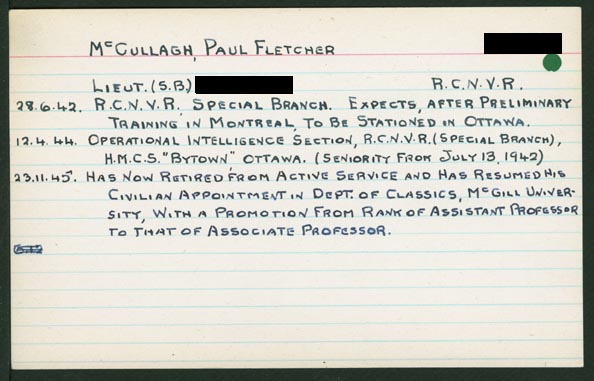 McCullagh, Paul Fletcher
Lieut. (S.B.) R.C.N.V.R.
28.6.42. R.C.N.V.R, Special Branch. Expects, after preliminary
training in Montreal, to be stationed in Ottawa.
12.4.44. Operational Intelligence Section, R.C.N.V.R. (Special Branch),
H.M.C.S. "Bytown" Ottawa. (Seniority from July 13, 1942)
23.11.45. Has now retired from active service and has resumed his
civilian appointment in Dept. of Classics, McGill Univer-
sity, with a promotion from rank of Assistant Professor
to that of Associate Professor.